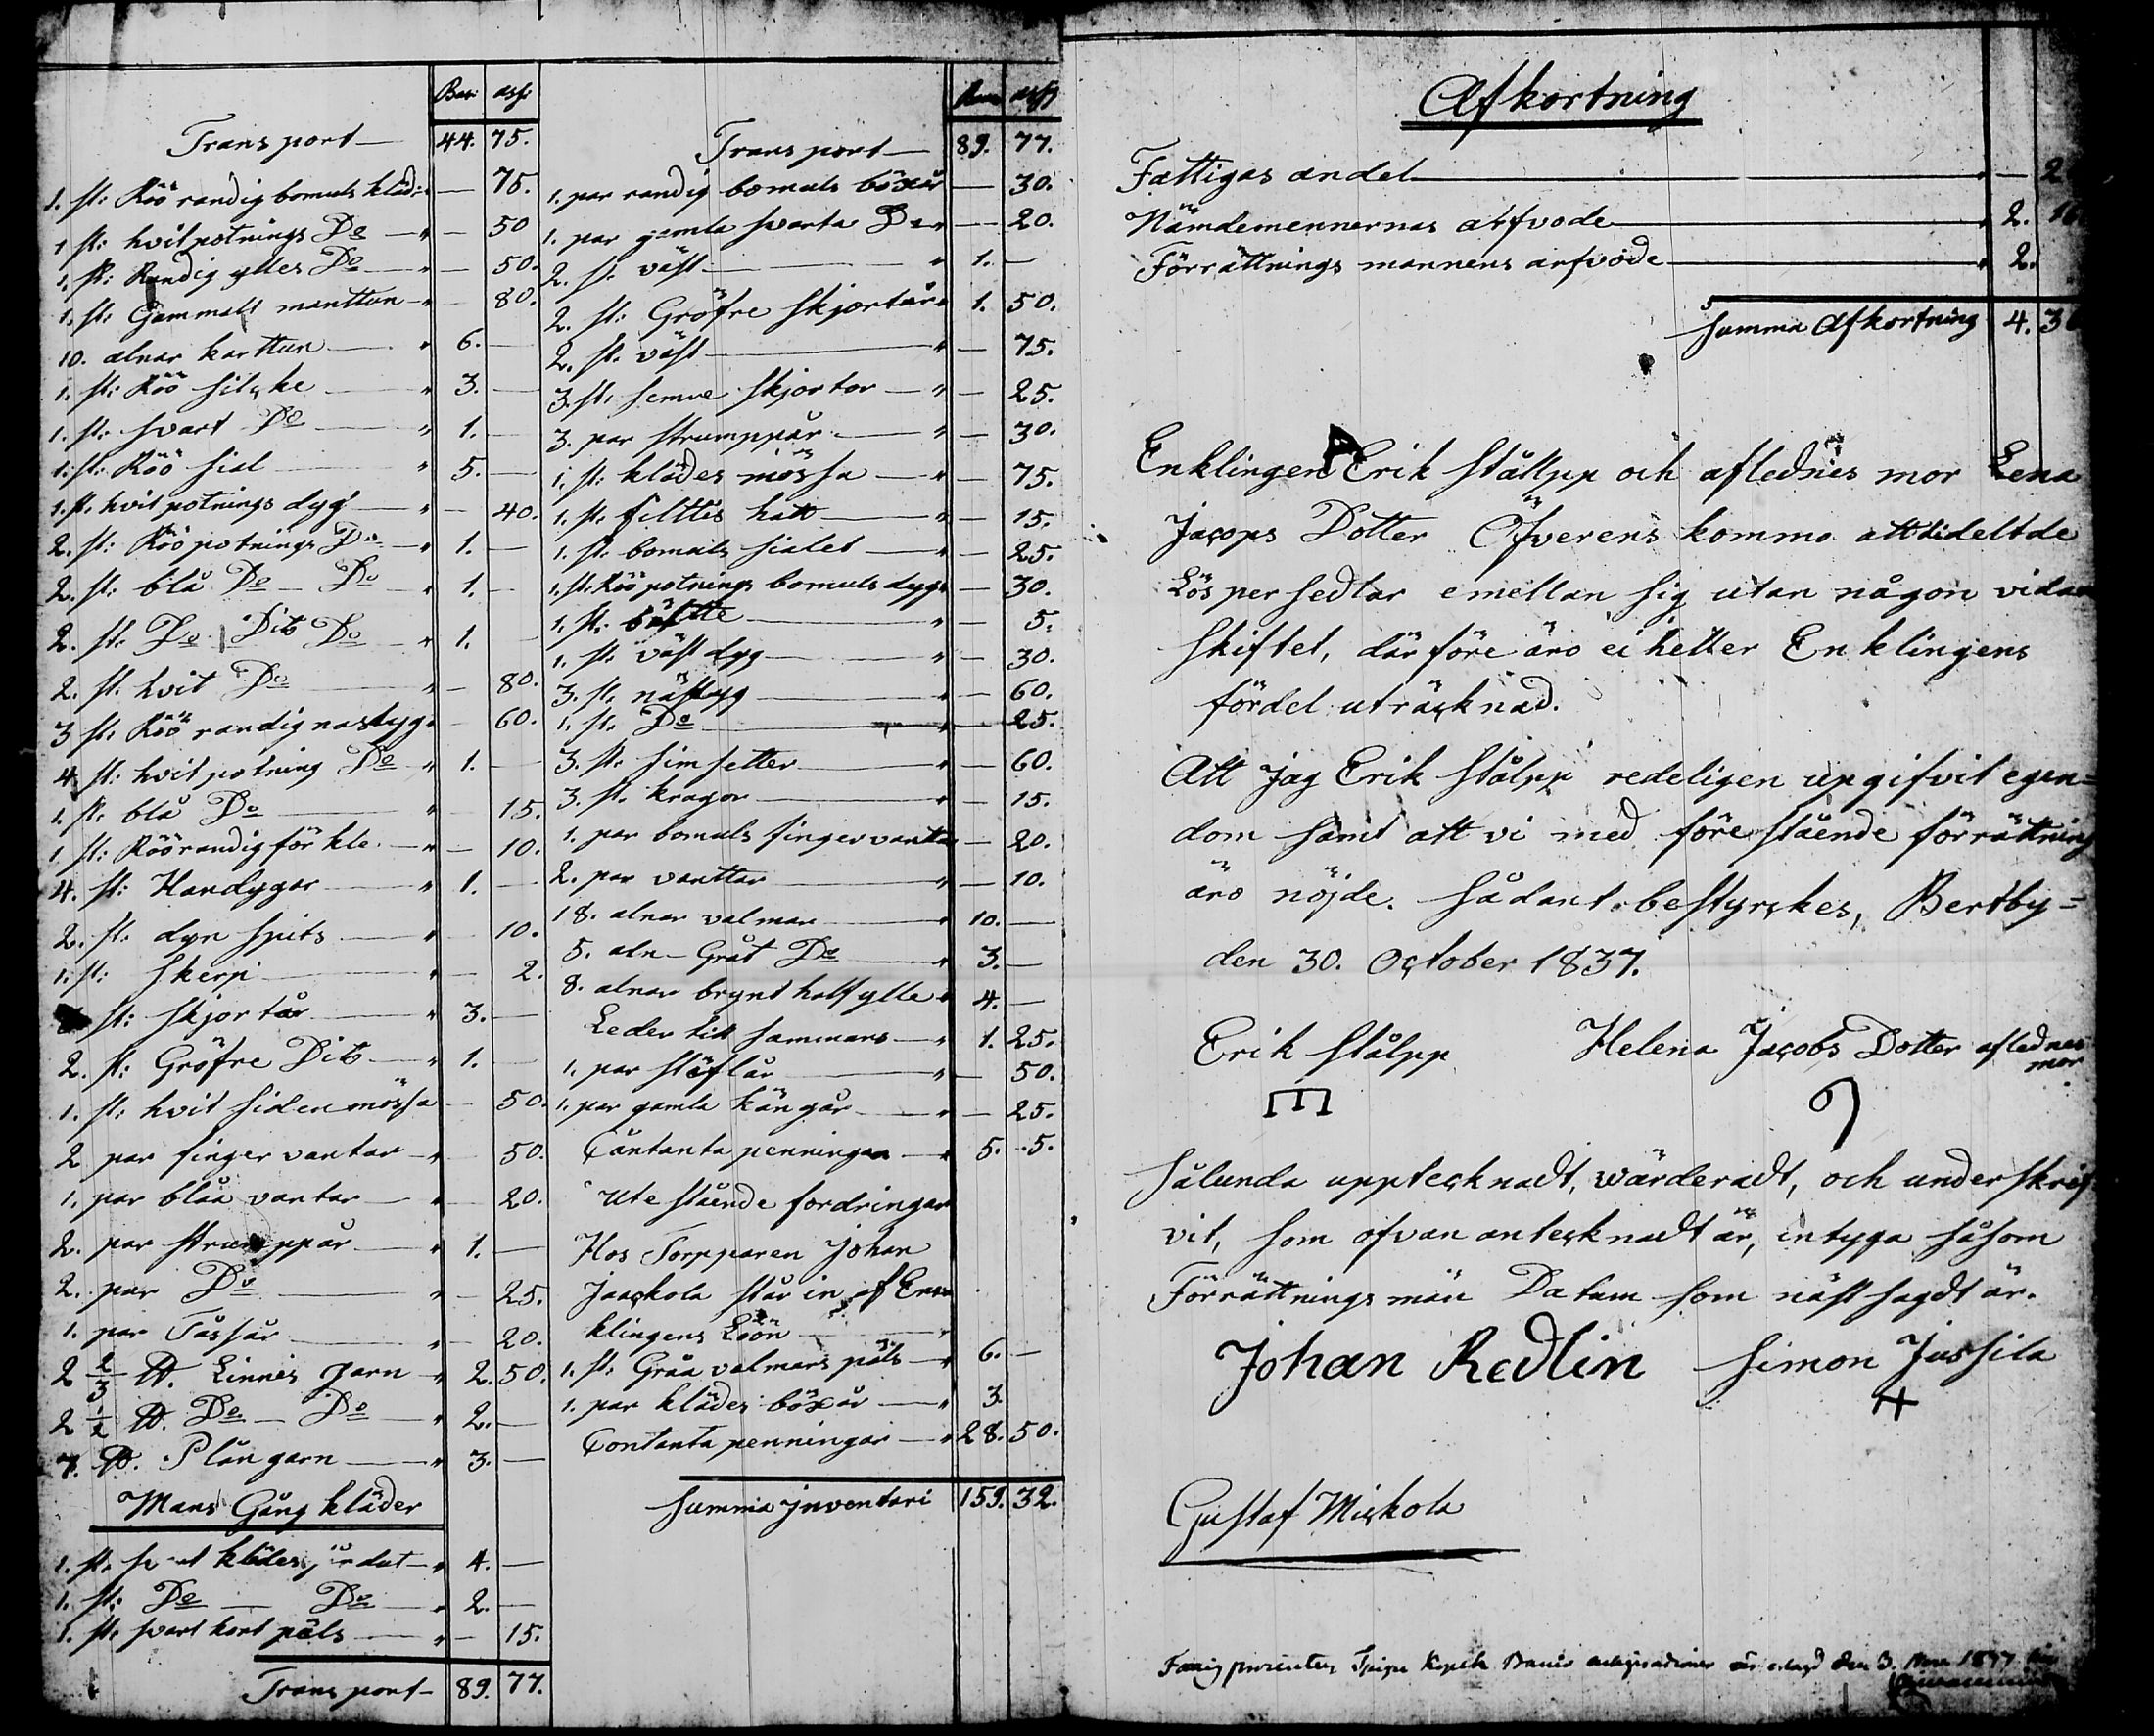 Ban: ass:
Transport — 44. 75.
1. st: Röö randig bomuls kläd: — 75.
1 st: hvit potnings Do — " — 50
1. st: Randig ylles Do — " — 50.
1. st: Gammalt manttun — " — 80.
10. alnar karttun — " 6. —
1. st: Röö silcke — " 3. —
1. st: svart Do — " 1. —
1. st: Röö sial " 5. —
1. st. hvit potnings dyg — " — 40.
2. st: Röö potnings Do — " 1. —
2. st: blå Do — Do " 1. —
2. st: Do Dito Do — " 1. —
2. st. hvit Do — " — 80.
3 st: Röö randig nastyg " — 60.
4. st: hvit potning Do — " 1. —
1. st. blå Do — " 15.
1 st: Röörandig för kle. — " — 10.
4. st: Handygar — " 1. —
2. st: dyn spits — " 10.
1. st: Skerp — " — 2.
st: skjortår — " 3. —
2. st: Gröfre Dito — " 1. —
1. st: hvit siden mössa — 50.
2 par finger vantar — " 50.
1. par blåa vantar — " 20.
2. par strumppår — " 1. —
2. par Do — " — 25.
1. par Tassår — " — 20.
2 2/3 ℔. Linnes garn — " 2. 50.
2 1/2 ℔. Do — Do — " 2. —
7. ℔. Plångarn — " 3. —
Mans Gång kläder
1. st. klädes — " 4. —
1. st: Do — Do — " 2. —
1. st: svart kort päls — " — 15.
Transport — 89. 77.
Transport — 89. 77.
1. par randig bomuls böxår — 30.
1. par gamla svarta Do " — 20.
2. st. väst — " 1. —
2. st: Gröfre Skjortår " 1. 50.
2. st. väst — " — 75.
3. st. semre skjortor — " — 25.
3. par strumppår — " — 30.
1. st: klädes mössa — " — 75.
1. st. filttis hatt — " — 15.
1. st: bomuls sialet — " — 25.
1. st: Röö potnings bomuls dyg " — 30.
1. st: bältte — " — 5.
1. st: väst dyg — " — 30.
3. st. nästyg — " — 60.
1. st. Do — " — 25.
3. st: simsetter — " — 60.
3. st. kragor — " — 15.
1. par bomuls fingervantar — 20.
2. par vanttar — " — 10.
18. alnar valmar — " 10. —
5. aln — Gråt Do — " 3. —
8. alnar brynt halfylle " 4. —
Leder till sammans — " 1. 25.
1. par stöflår — " — 50.
1. par gamla kängår — " — 25.
Contanta penningar — " 5. 5.
Utestående fordringar
Hos Torpparen Johan
Jaackola står in af Enn
klingens Löön — "
1. st: Gråa valmars päls — " 6. —
1. par klädes böxår — " 3.
Contanta penningar — " 28. 50.
Summa jnventari 159. 32.
Afkortning
Fattigas andel — " —
Nämdemennernas arfvode — " 2.
Förrättnings mannens arfvode — " 2.
Summa Afkortning 4.
Enklingen Erik Stållpp och aflednes mor Lena
Jacops Dotter Öfverens kommo att tideltde
Lös persedlar emellan sig utan någon vidare
skiftet, därföre äro ei heller Enklingens
fördel uträcknad.
Att Jag Erik Stålpp redeligen upgifvit egen=
dom samt att vi med förestående förrättning
äro nöjde. sådant bestyrckes, Bertby=
den 30. October 1837.
Erik Stålpp Helena Jacobs Dotter aflednes
mor
Sålunda upptecknadt, wärderadt, och underskrif
vit, som ofvan antecknadt är, intyga såsom
Förrättnings män Datum som näst sagdt är.
Johan Redlin Simon Jussila
Gustaf Mickola
den 3. Nov.